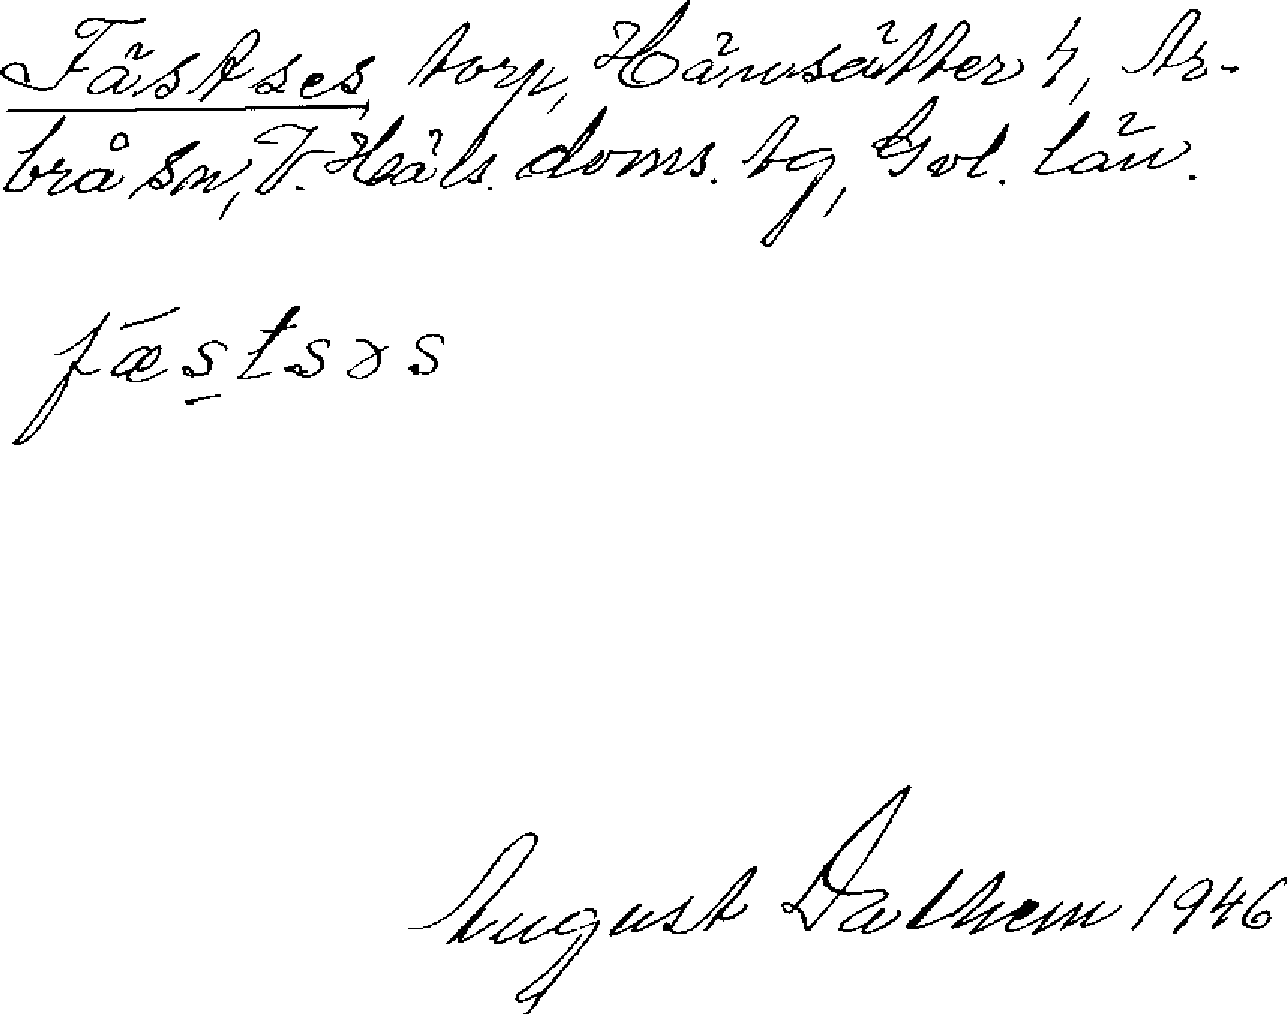 Fästses torp, Hänsätter 4, Ar-
brå sn, V. Häls. doms. bg, Gvl. län.
fæ̅s̲tsɘs
August Dalhem 1946